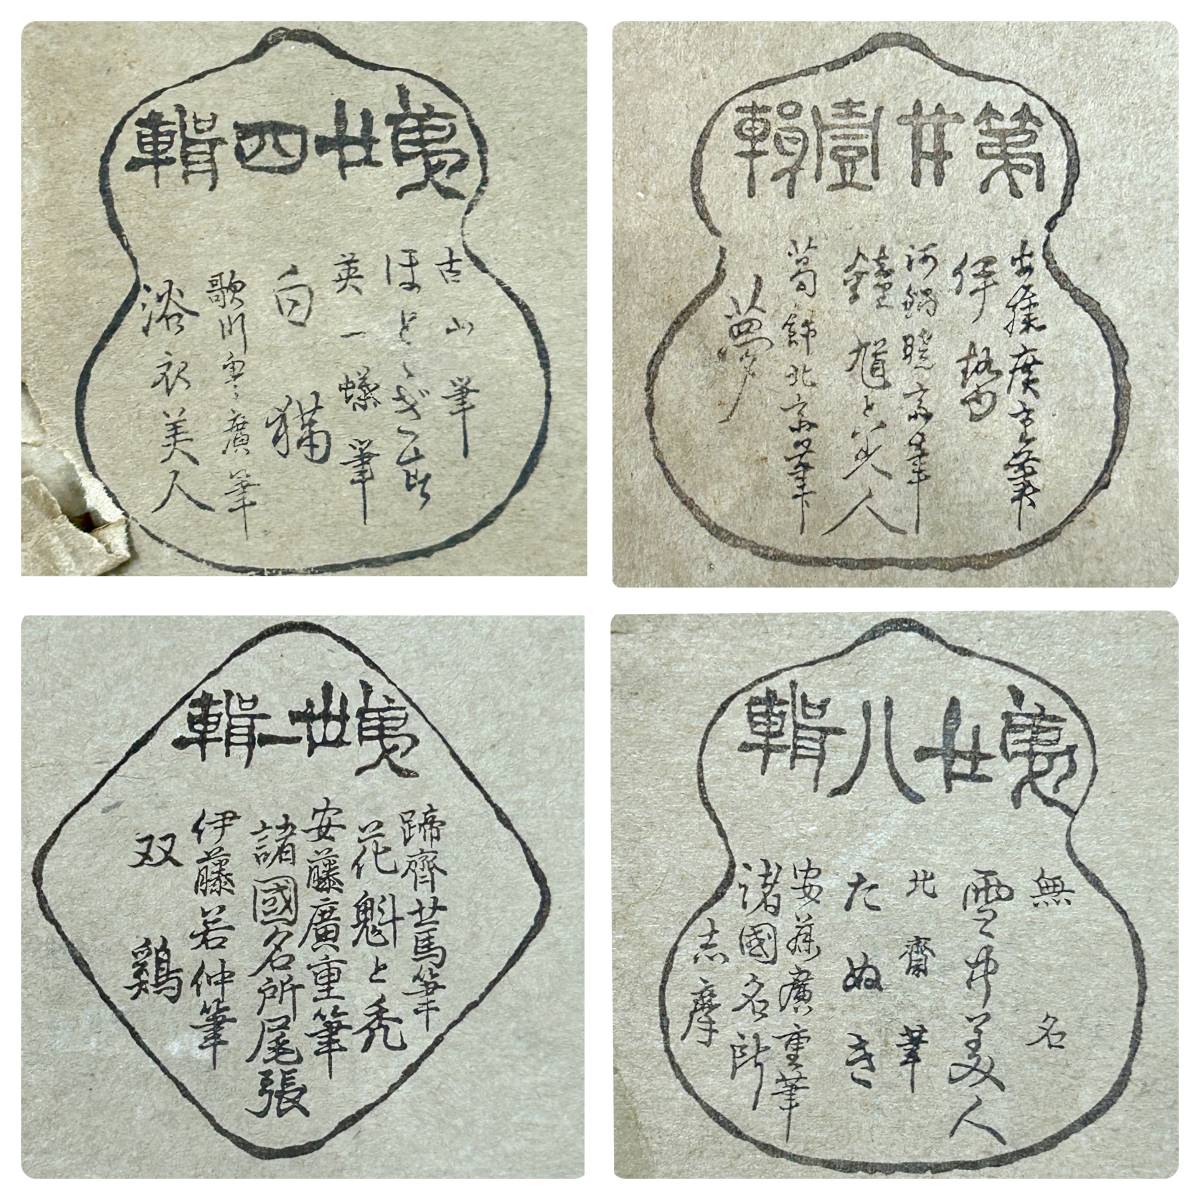 第廿四輯
古山筆
ほとゝぎ
英一蝶筆
白猫
歌川豊廣筆
浴衣美人
第廿壹輯
安藤廣重筆
伊勢
河鍋暁斎筆
鐘馗と美人
葛飾北斎筆
夢
第丗一輯
蹄齊北馬筆
花魁と禿
安藤廣重筆
諸國名所尾張
伊藤若仲筆
双鶏
第廿八輯
無名
雪中美人
北齋筆
たぬき
安藤廣重筆
諸國名所
志摩